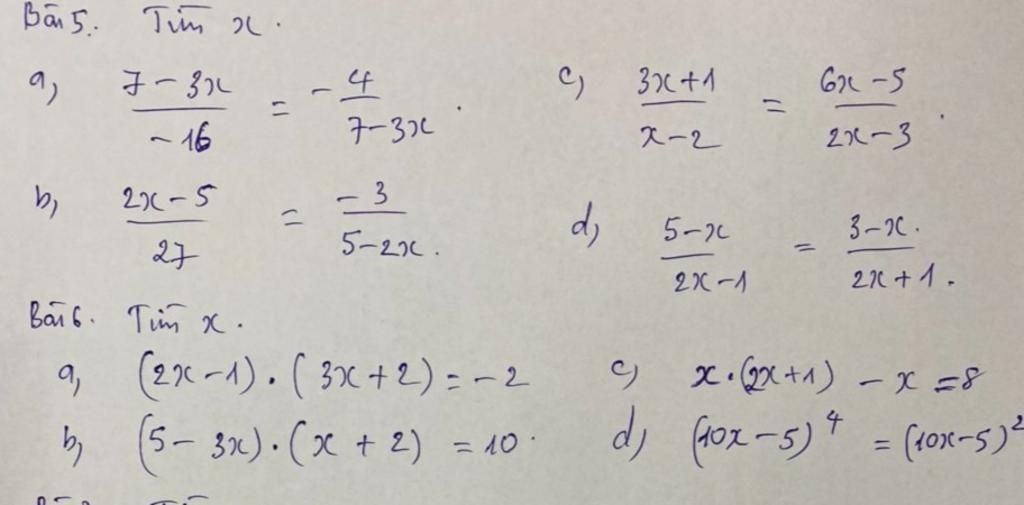 Bài 5. Tìm x.
a, (7 - 3x)/(-16) = - 4/(7 - 3x).
c, (3x + 1)/(x - 2) = (6x - 5)/(2x - 3).
b, (2x - 5)/27 = (-3)/(5 - 2x).
d, (5 - x)/(2x - 1) = (3 - x)/(2x + 1).
Bài 6. Tìm x.
a, (2x - 1) . (3x + 2) = -2
c, x . (2x + 1) - x = 8
b, (5 - 3x) . (x + 2) = 10.
d, (10x - 5)⁴ = (10x - 5)²